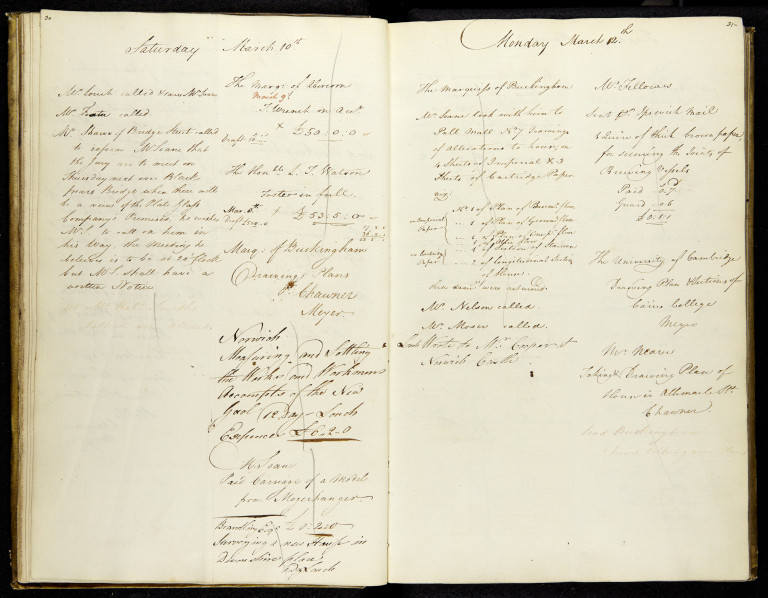 30
Saturday March 10th
Mr Leach called
Mr called
Mr Shaw of Bridge Street called
to inform Mr Soane that
the Jury are to meet on
Thursday next over Black
friars Bridge when there will
be a view of the Plate Glass
Company's Premises, he wishes
Mr S. to call on him in
his Way, the Meeting he
believes is to be at 20'Clock
but Mr S. shall have a
written Notice
The Marq: of Abercorn
March 9th
T. Wrench on acct
Draft × £50:0:0
The Honble L. T. Watson
Foster in full
Mar. 8th
£53:5:0
Marq: of Buckingham
Drawing Plans
Chawner
Meyer
Norwich
Measuring and Settling
the Works and Workmens
Accompts of the New
Gaol (12 day - Leach
Expences £6-2-0
Mr Soane
Paid Carriage of a Model
from Mazerhanger
Bramston Esqr £0:2:0
Surveying a new House in
Devonshire place
By Leach
31
Monday March 12th
The Marquiss of Buckingham
Mr Soane took with him to
Pall Mall No 7 Drawings
of alterations to house, on
4 Sheets of Imperial & 3
Sheets of Cartridge Paper
viz
on Imperial Paper
No 1 of Plan of Basemt floor
1 of Plan of Ground floor
1 of Plan of floor
1 of Section of Staircase
on Cartridge Paper
2 of longitudinal Section
of House
these draws were returned
Mr Nelson called
Mr Moser called.
Leach Wrote to Mr Cooper at
Norwich Castle
Mr Fellowes
Sent pr Ipswich Mail
1 Quire of thick brown paper,
for securing the Joints of
Brewing Vessels
Paid
Guard
The University of Cambridge
Drawing Plan & Sections of
Caius College
Meyer
Mr Neave
Taking & Drawing Plan of
House in Albemarle St.
Chawner